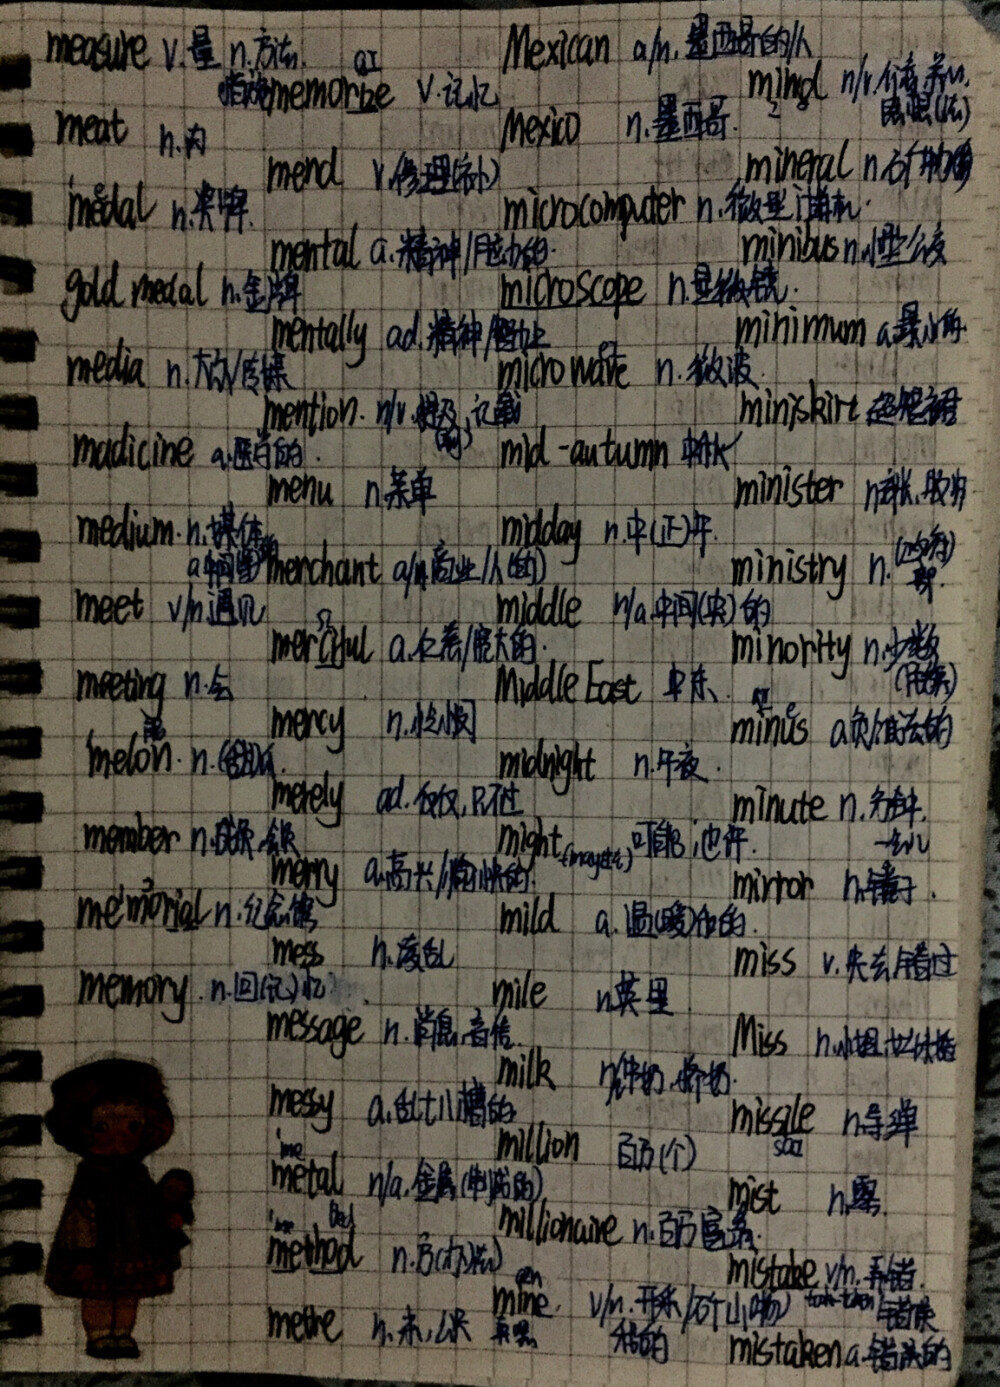 measure v.量 n.方法.
措施
meat n.肉
medal n.奖牌.
gold medal n.金牌
media n.大众/传媒
madicine a.医药的.
medium. n.媒体
a中间
meet v/n.遇见
meeting n.会
melon. n.(甜)瓜.
member n.成员.会员
memorial n.纪念馆
memory. n.回(记)忆
memorize v.记忆
mend v.修理(补)
mental a.精神/脑力的.
mentally ad.精神/智力上
mention. n/v.提及,记载
menu n.菜单
merchant a/n商业/人(的)
merciful a.仁慈/宽大的.
mercy n.怜悯
merely ad.仅仅,只不过
merry a.高兴/愉快的.
mess n.凌乱
message n.消息,音信.
messy a.乱七八糟的
metal n/a.金属(制成的)
method n.方(办法)
metre n.米,公尺
Mexican a/n.墨西哥的/人
Mexico n.墨西哥.
microcomputer n.微型计算机.
microscope n.显微镜.
microwave n.微波.
mid-autumn 中秋
midday n.中(正)午.
middle n/a.中间(央)的
Middle East 中东.
midnight n.午夜.
might 可能,也许.
mild a.温(暖)和的.
mile n.英里.
milk n牛奶.
million 百万(个)
millionaire n.百万富翁.
mine. v/n.开采/矿山(物)
我的
mind n/v.
mineral n.矿物质
minibus n.小型公交
minimum a.最小的
miniskirt 超短裙
minister n部长.牧师
ministry n.
部.
minority n.少数
(民族)
minus a.负/减去的
minute n.分钟.
一会儿
mirror n.镜子.
miss v.失去/错过
Miss n.小姐,女
missile n.导弹
mist n.雾.
mistake v/n.弄错.
错误
mistaken a.错误的